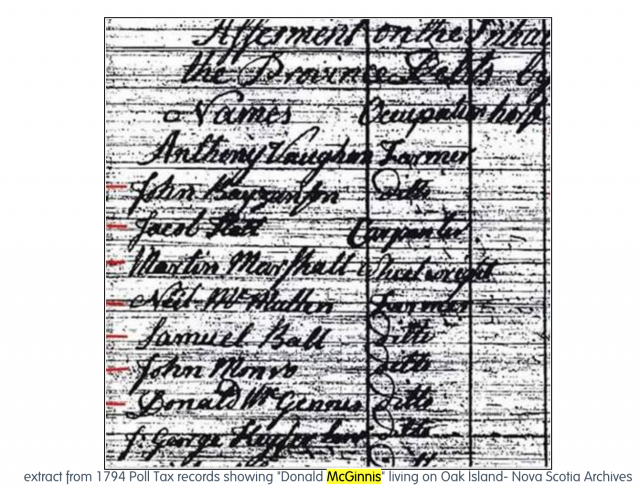 Assesment on the Inhab
the Province Debts by
Names Occupation
Anthony Vaughan Farmer
John ditto
Jacob Carpenter
Martin Marshall Wheelwright
Neil McMullen Farmer
Samuel Ball ditto
John Monro ditto
Donald McGennis ditto
George ditto
extract from 1794 Poll Tax records showing "Donald McGinnis" living on Oak Island- Nova Scotia Archives